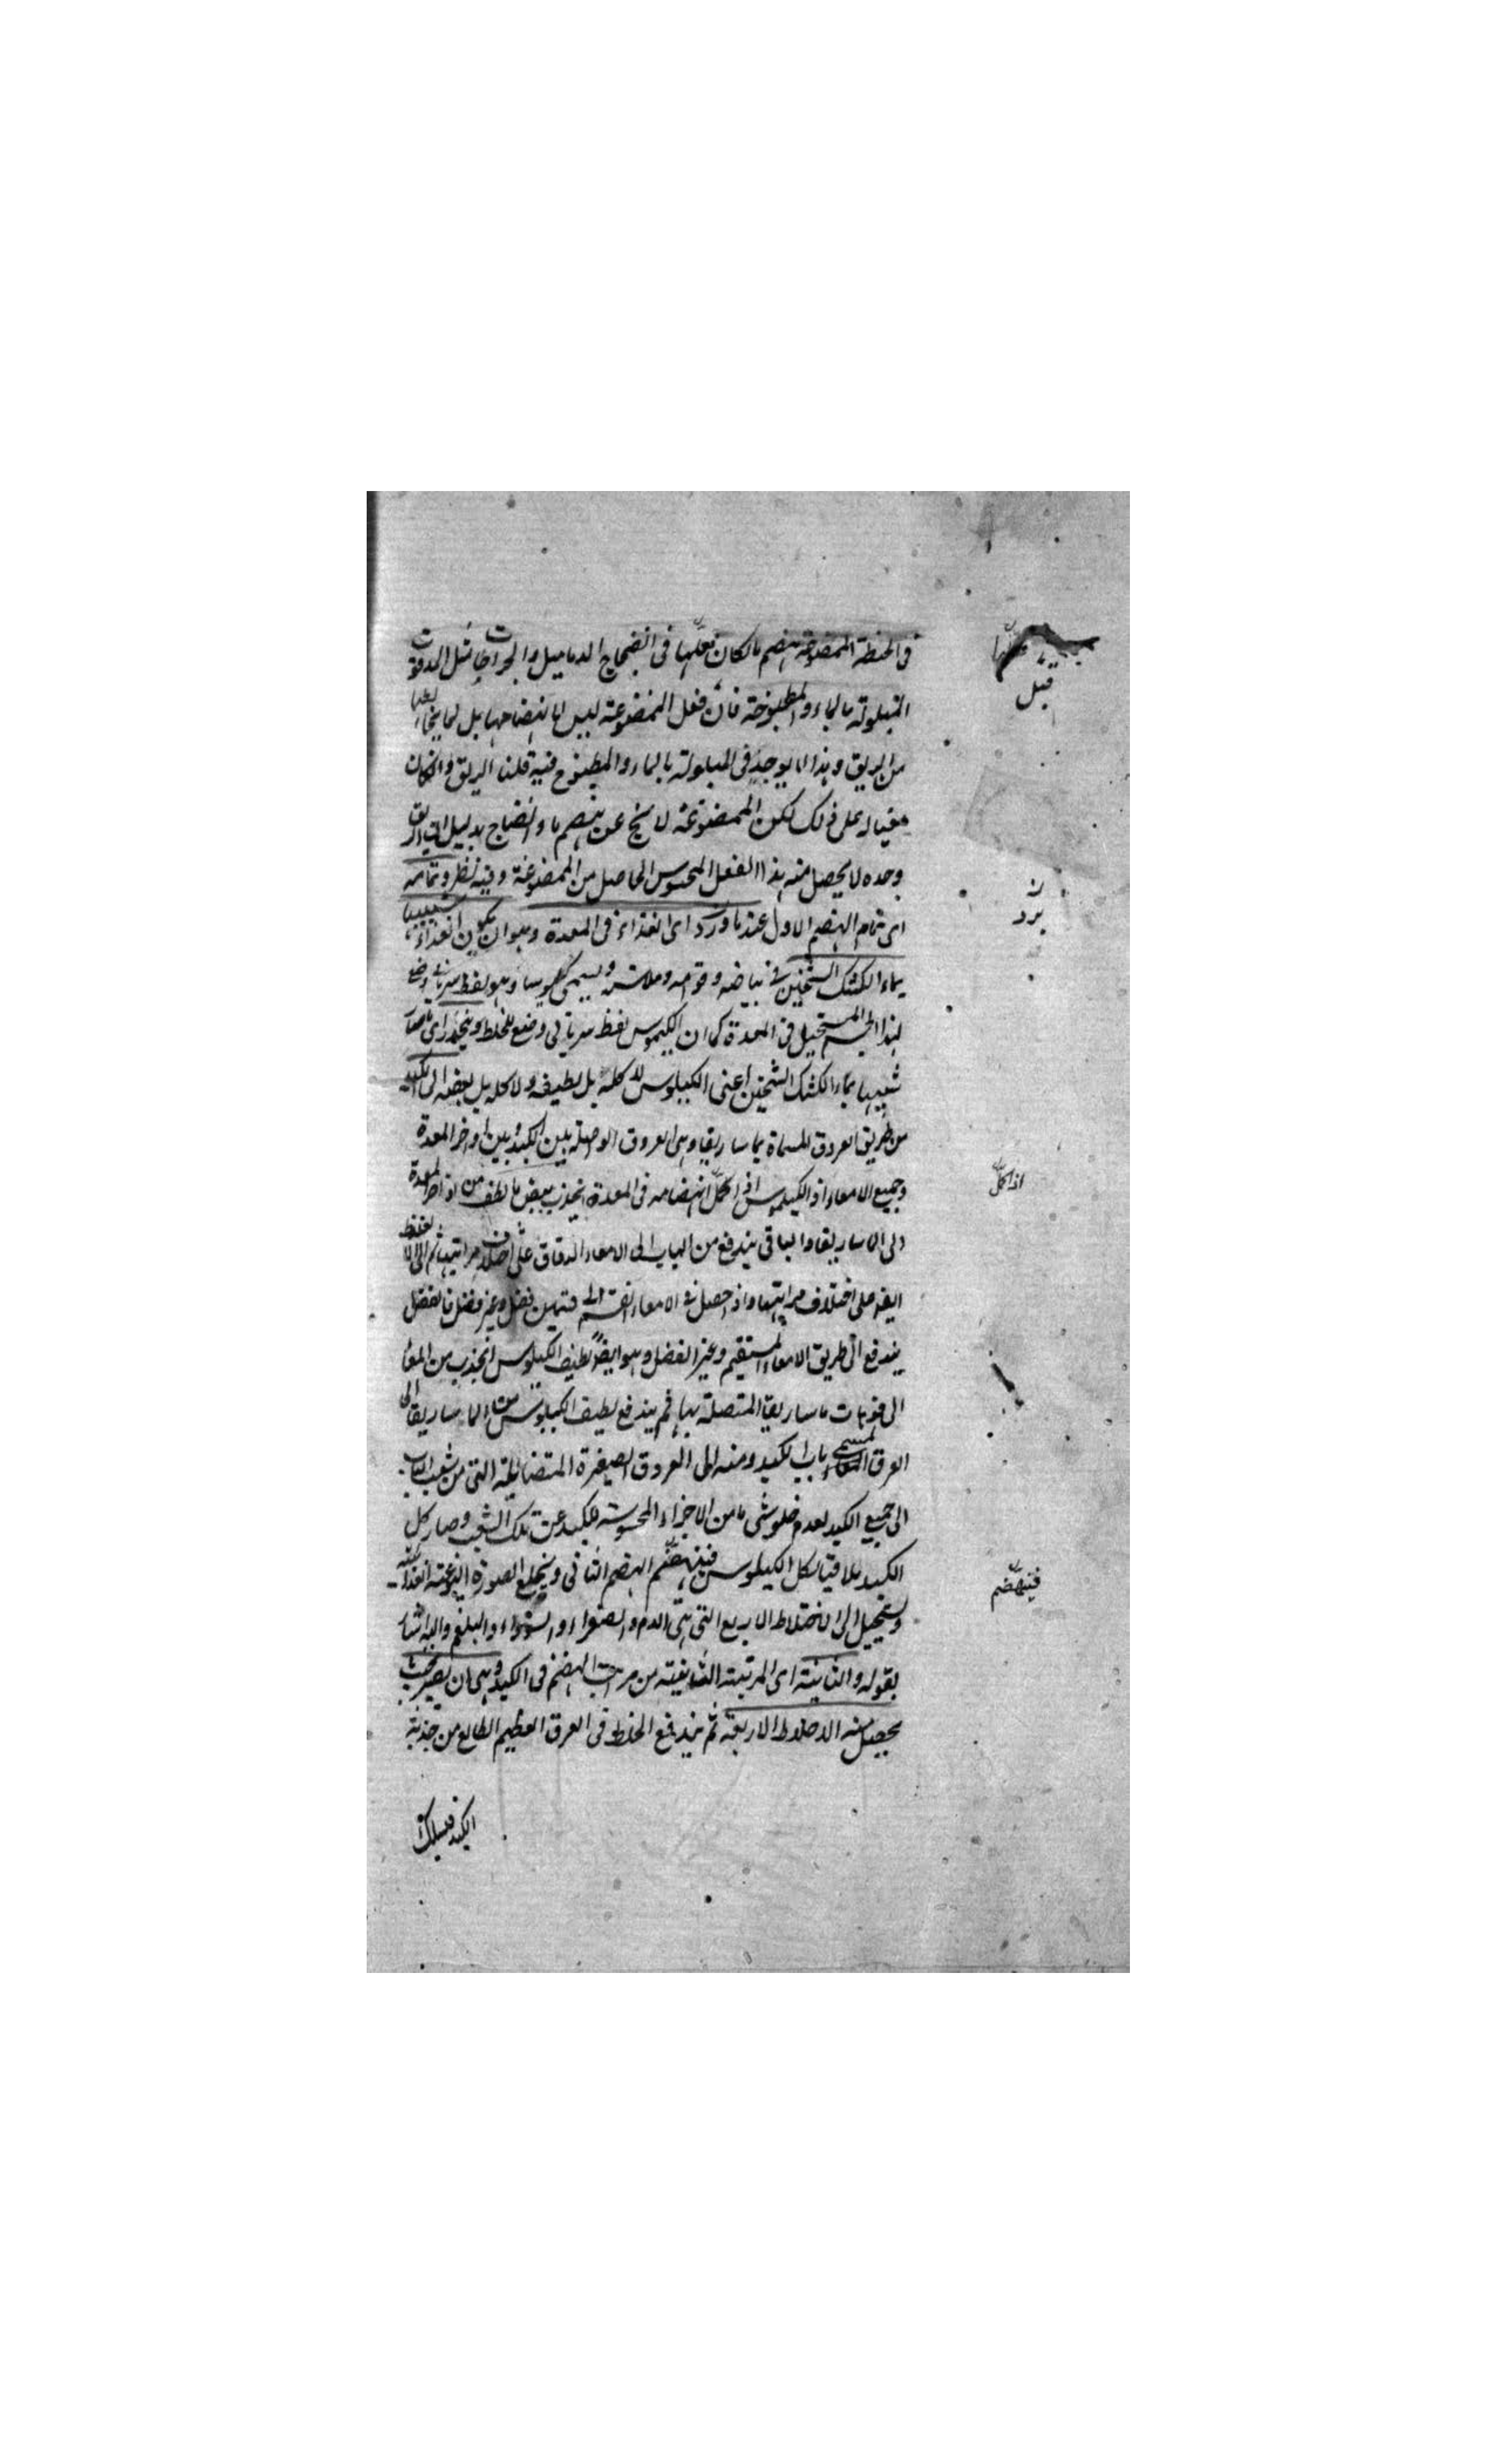 فى الحنطة الممضوغة هضم ما لكان فعلها فى انضاج الدماميل والجراحات مثل المدقوقة
المبلولة بالماء والمطبوخة فان فعل الممضوغة ليس لانهضامها بل لما يخالطها
من الريق وهذا لا يوجد فى المبلولة بالماء والمطبوخ فيه قلنا الريق وان كان
معينا له على ذلك لكن الممضوغة لا تخ عن هضم ما وانضاج بدليل ان الريق
وحده لا يحصل منه هذا الفعل المحسوس الحاصل من الممضوغة وفيه نظر وتمامه
اى تمام الهضم الاول عند ما ورد اى الغذاء فى المعدة وهو ان يكون الغذاء شبيها
بماء الكشك الثخين فى بياضه وقوامه وملاسته ويسمى كيلوسا وهو لفظ سريانى وضع
لهذا الجسم المستحيل فى المعدة كما ان الكيموس لفظ سريانى وضع للخلط وينجذب اى ما صار
شبيها بماء الكشك الثخين اعنى الكيلوس لا كله بل لطيفه ولا كله بل بعضه الى الكبد
من طريق العروق المسماة بماساريقا وهى العروق الواصلة بين الكبد وبين اواخر المعدة
وجميع الامعاء اذ الكيلوس اذا كمل انهضامه فى المعدة انجذب بعض ما لطف من اواخر المعدة
الى الماساريقا والباقى يندفع من الباب الى الامعاء الدقاق على اختلاف مراتبها ثم الى الغلاظ
ايضا على اختلاف مراتبها واذا حصل فى الامعاء انقسم الى قسمين فضل وغير فضل فالفضل
يندفع الى طريق الامعاء المستقيم وغير الفضل وهو ايضا لطيف الكيلوس انجذب من المعاء
الى فوهات ماساريقا المتصلة بها ثم يندفع لطيف الكيلوس من الماساريقا الى
العرق المسمى باب الكبد ومنه الى العروق الصغيرة المتضائلة التى من شعب الباب
الى جميع الكبد لعدم خلو شى ما من الاجزاء المحسوسة للكبد عن تلك الشعب وصار كل
الكبد ملاقيا لكل الكيلوس فينهضم الهضم الثانى وينخلع الصورة النوعية الغذائية
ويستحيل الى الاخلاط الاربع التى هى الدم والصفراء والسوداء والبلغم واليه اشار
بقوله والثانية اى المرتبة الثانية من مراتب الهضم فى الكبد وهى ان يصير بحيث
يحصل منه الاخلاط الاربعة ثم يندفع الخلط فى العرق العظيم الطالع من حدبة
الكبد فيسلك
قبل
يرد
اذا كمل
فينهضم